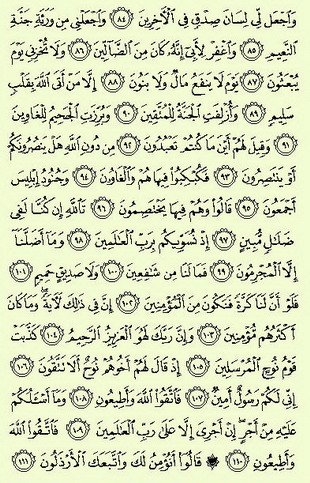 وَٱجْعَل لِّى لِسَانَ صِدْقٍ فِى ٱلْءَاخِرِينَ ٨٤ وَٱجْعَلْنِى مِن وَرَثَةِ جَنَّةِ
ٱلنَّعِيمِ ٨٥ وَٱغْفِرْ لِأَبِىٓ إِنَّهُۥ كَانَ مِنَ ٱلضَّآلِّينَ ٨٦ وَلَا تُخْزِنِى يَوْمَ
يُبْعَثُونَ ٨٧ يَوْمَ لَا يَنفَعُ مَالٌ وَلَا بَنُونَ ٨٨ إِلَّا مَنْ أَتَى ٱللَّهَ بِقَلْبٍ
سَلِيمٍ ٨٩ وَأُزْلِفَتِ ٱلْجَنَّةُ لِلْمُتَّقِينَ ٩٠ وَبُرِّزَتِ ٱلْجَحِيمُ لِلْغَاوِينَ
٩١ وَقِيلَ لَهُمْ أَيْنَ مَا كُنتُمْ تَعْبُدُونَ ٩٢ مِن دُونِ ٱللَّهِ هَلْ يَنصُرُونَكُمْ
أَوْ يَنتَصِرُونَ ٩٣ فَكُبْكِبُوا۟ فِيهَا هُمْ وَٱلْغَاوُۥنَ ٩٤ وَجُنُودُ إِبْلِيسَ
أَجْمَعُونَ ٩٥ قَالُوا۟ وَهُمْ فِيهَا يَخْتَصِمُونَ ٩٦ تَٱللَّهِ إِن كُنَّا لَفِى
ضَلَٰلٍ مُّبِينٍ ٩٧ إِذْ نُسَوِّيكُم بِرَبِّ ٱلْعَٰلَمِينَ ٩٨ وَمَآ أَضَلَّنَآ
إِلَّا ٱلْمُجْرِمُونَ ٩٩ فَمَا لَنَا مِن شَٰفِعِينَ ١٠٠ وَلَا صَدِيقٍ حَمِيمٍ ١٠١
فَلَوْ أَنَّ لَنَا كَرَّةً فَنَكُونَ مِنَ ٱلْمُؤْمِنِينَ ١٠٢ إِنَّ فِى ذَٰلِكَ لَءَايَةً وَمَا كَانَ
أَكْثَرُهُم مُّؤْمِنِينَ ١٠٣ وَإِنَّ رَبَّكَ لَهُوَ ٱلْعَزِيزُ ٱلرَّحِيمُ ١٠٤ كَذَّبَتْ
قَوْمُ نُوحٍ ٱلْمُرْسَلِينَ ١٠٥ إِذْ قَالَ لَهُمْ أَخُوهُمْ نُوحٌ أَلَا تَتَّقُونَ ١٠٦
إِنِّى لَكُمْ رَسُولٌ أَمِينٌ ١٠٧ فَٱتَّقُوا۟ ٱللَّهَ وَأَطِيعُونِ ١٠٨ وَمَآ أَسْـَٔلُكُمْ
عَلَيْهِ مِنْ أَجْرٍ إِنْ أَجْرِىَ إِلَّا عَلَىٰ رَبِّ ٱلْعَٰلَمِينَ ١٠٩ فَٱتَّقُوا۟ ٱللَّهَ
وَأَطِيعُونِ ١١٠ ۞ قَالُوٓا۟ أَنُؤْمِنُ لَكَ وَٱتَّبَعَكَ ٱلْأَرْذَلُونَ ١١١